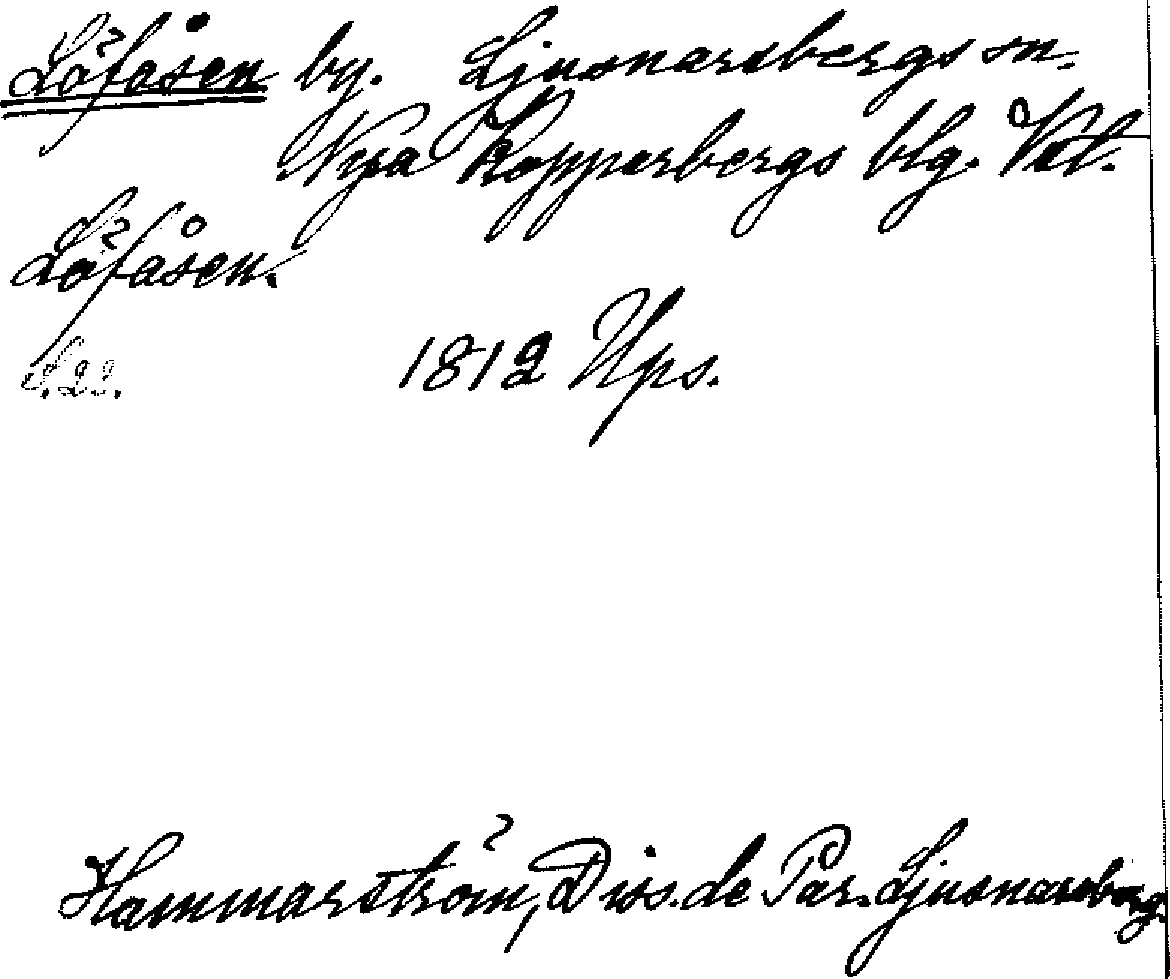 Löfåsen by. Ljusnarsbergs sn.
Nya Kopparbergs blg. Vstl.
Löfåsen.
S. 22. 1812 Ups.
Hammarström, Diss. de Par. Ljusnarsberg.